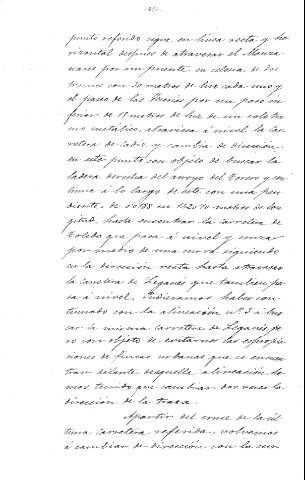 punto referido sigue en linea recta y ho
rizontal despues de atravesar el Manza
nares por un puente en celosia de dos
tramos con 30 metros de luz cada uno y
el paseo de las por un paso in
ferior de 15 metros de luz de un solo tra
mo metálico, atraviesa á nivel la car
retera de Cadiz y cambia de direccion
en este punto con objeto de buscar la
ladera derecha del arroyo del y con
tinua á lo largo de este con una pen
diente de en metros de lon
gitud, hasta encontrar la carretera de
Toledo que pasa á nivel y
por medio de una curva siguiendo
en la direccion recta hasta atravesar
la carretera de Leganés que tambien pa
sa á nivel. Pudieramos haber con
tinuado con la alineacion nº 3 á bus
car la misma carretera de Leganés, pe
ro con objeto de evitarnos las espropia
ciones de fincas urbanas que se encuen
tran delante de aquella alineacion, he
mos tenido que cambiar dos veces la
direccion de la traza.
Apartir del cruce de la úl
tima carretera referida, volvemos
á cambiar de direccion con la cur